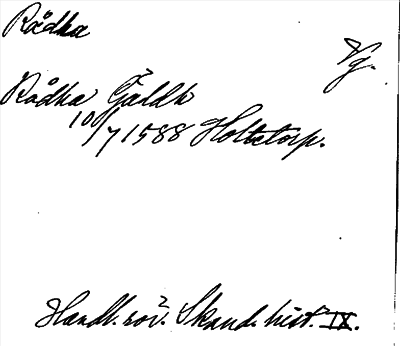 Rådka
Vg.
Rådka Gäldh
10/7 1588 Holtstorp.
Handl. röv. Skand. hist. IX.